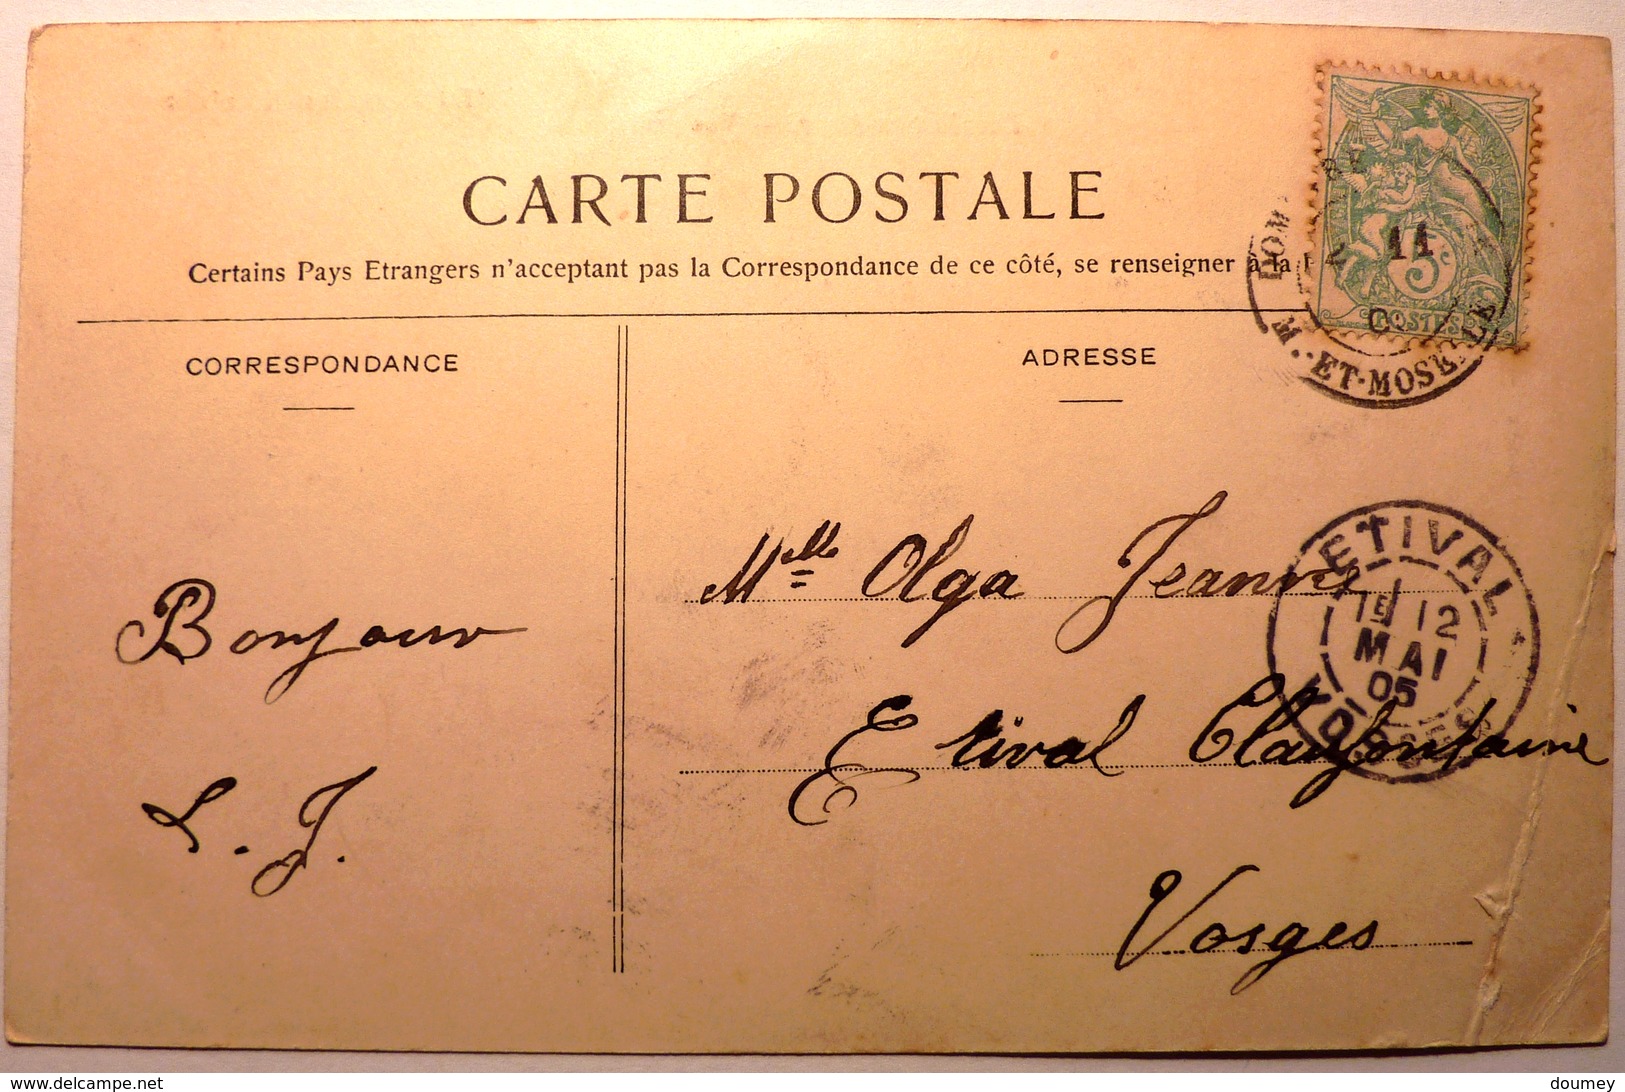 CARTE POSTALE
Certains Pays Etrangers n'acceptant pas la Correspondance de ce côté, se renseigner à la
CORRESPONDANCE
ADRESSE
5c
POSTES
DOM
11
M.·ET·MOSELLE
Bonjour
L. J.
Mlle Olga
Etival Clairfontaine
Vosges
ETIVAL
1E 12
MAI
05
VOSGES
delcampe.net
doumey